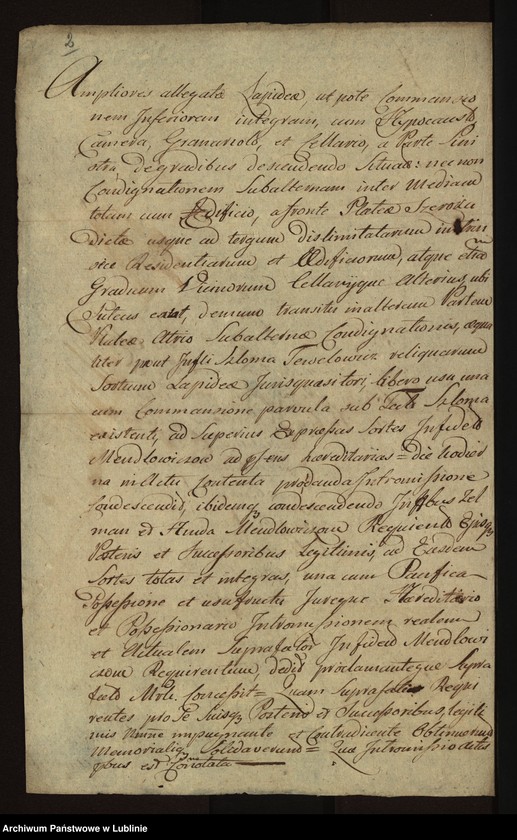 2
Ampliores allegatæ Lapideæ, ut pote Commansio
nem Inferiorem integram, cum Hypocausto
Camera, Granariolo, et Cellario, a Parte Sini
stra de gradibus descendendo Situat: nec non
Condignationem Subalternam inter Mediam
totam cum Ædificio, a fronte Plateæ Szeroka
dictæ usque ad tergum dislimitatarum in
Residentiarum et Ædificiorum, atque etiam
Graduum Cellarijque Alterius, ubi
Puteus extat, demum transitus in alteram Partem
Atrio Subalternæ Condignationis, æqua
liter prout Infli Szloma Tewelowicz reliquarum
Sortium Lapideæ Jurisquæsitori libero usu una
cum Commansione parvula sub Szloma
existenti, ad Superius Expressas Sortes Infidelis
Mendlowiczow ad pñens hæreditarias = die hodier
na in Actu Contenta prodanda Intromissione
Condescendit, ibidemq condescendendo Inflbus Zel
man et Hinda Mendlowiczow Requirend Ejusq
Posteris et Successoribus Legitimis, ad Easdem
Sortes totas et integras, una cum Pacifica
Possessione et usufructu Jureque Hæreditario
et Possessionario Intromissionem realem
et Actualem Suprafator Infidel Mendlowi
czow Requirentium, dedit proclamanteque Supra
fato Mrli Concessit = Quam Suprafati Requi
rentes pro Se Suisq Posteris et Successoribus, legiti
mis Nemine impugnante et Contradicente Obtinuerunt
Memorialiq Solidaverunt = Quæ Intromissio actis
pbus est Connotata
Archiwum Państwowe w Lublinie